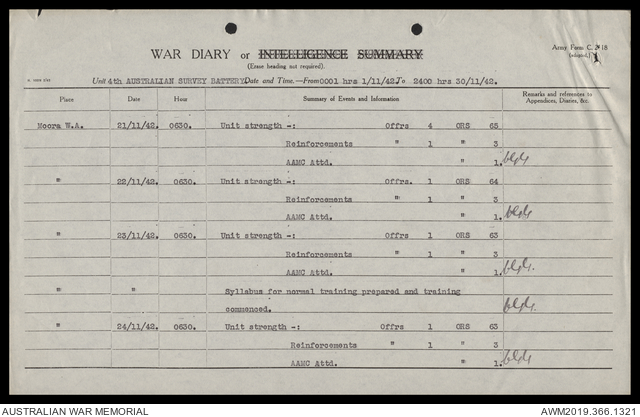 WAR DIARY or INTELLIGENCE SUMMARY
(Erase heading not required).
Army Form C. 2118
Unit 4th AUSTRALIAN SURVEY BATTERY. Date and Time.—From 0001 hrs 1/11/42. To 2400 hrs 30/11/42.
Place Date Hour Summary of Events and Information Remarks and references to Appendices, Diaries, &c.
Moora W.A. 21/11/42. 0630. Unit strength -: Offrs 4 ORS 65
Reinforcements " 1 " 3
AAMC Attd. " 1.
" 22/11/42. 0630. Unit strength -: Offrs. 1 ORS 64
Reinforcements " 1 " 3
AAMC Attd. " 1.
" 23/11/42. 0630. Unit strength -: Offrs 1 ORS 63
Reinforcements " 1 " 3
AAMC Attd. " 1.
" " Syllabus for normal training prepared and training
commenced.
" 24/11/42. 0630. Unit strength -: Offrs 1 ORS 63
Reinforcements " 1 " 3
AAMC Attd. " 1.
AUSTRALIAN WAR MEMORIAL AWM2019.366.1321